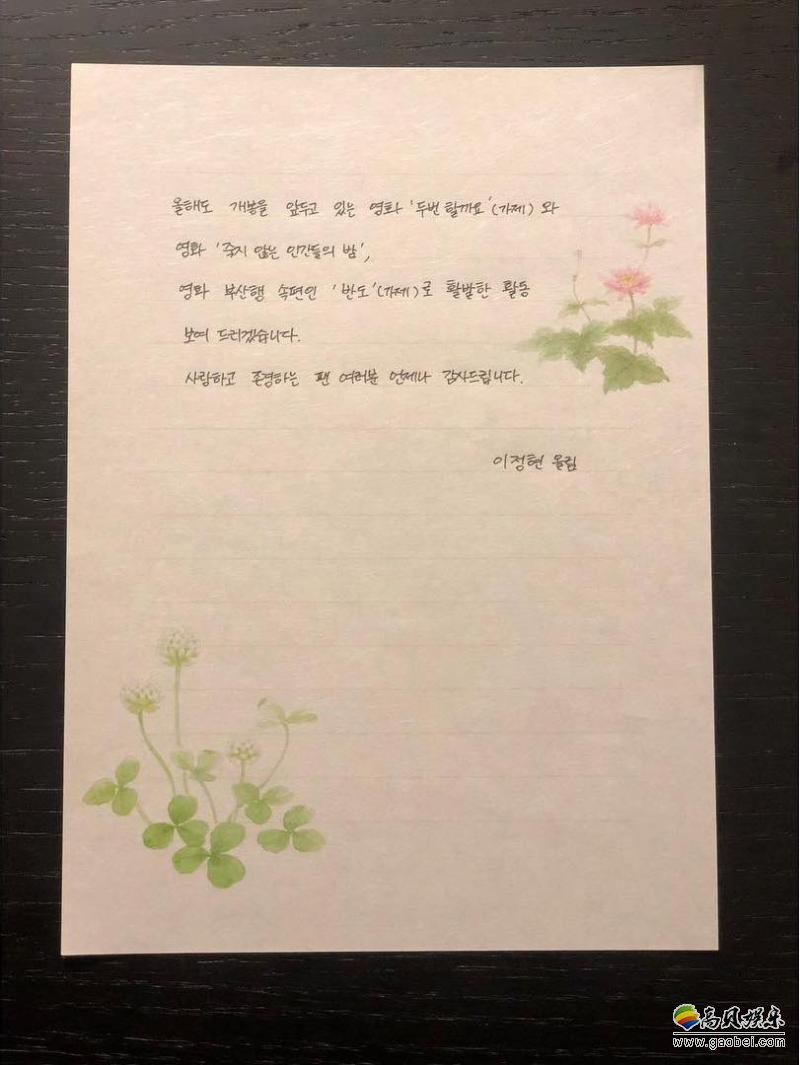 올해도 개봉을 앞두고 있는 영화 '두번할까요'(가제)와
영화 '죽지 않는 인간들의 밤',
영화 부산행 속편인 '반도'(가제)로 활발한 활동
보여 드리겠습니다.
사랑하고 존경하는 팬 여러분 언제나 감사드립니다.
이정현 올림
高贝娱乐
www.gaobei.com